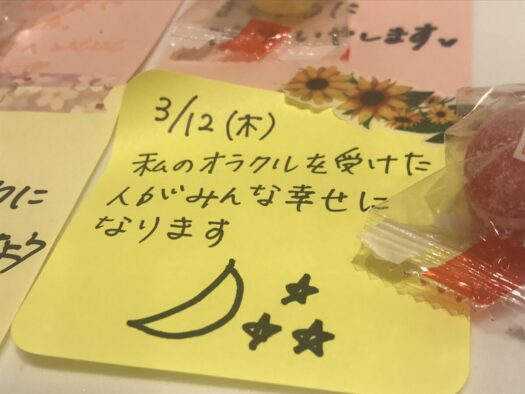 します
3/12(木)
私のオラクルを受けた
人がみんな幸せに
なります
に